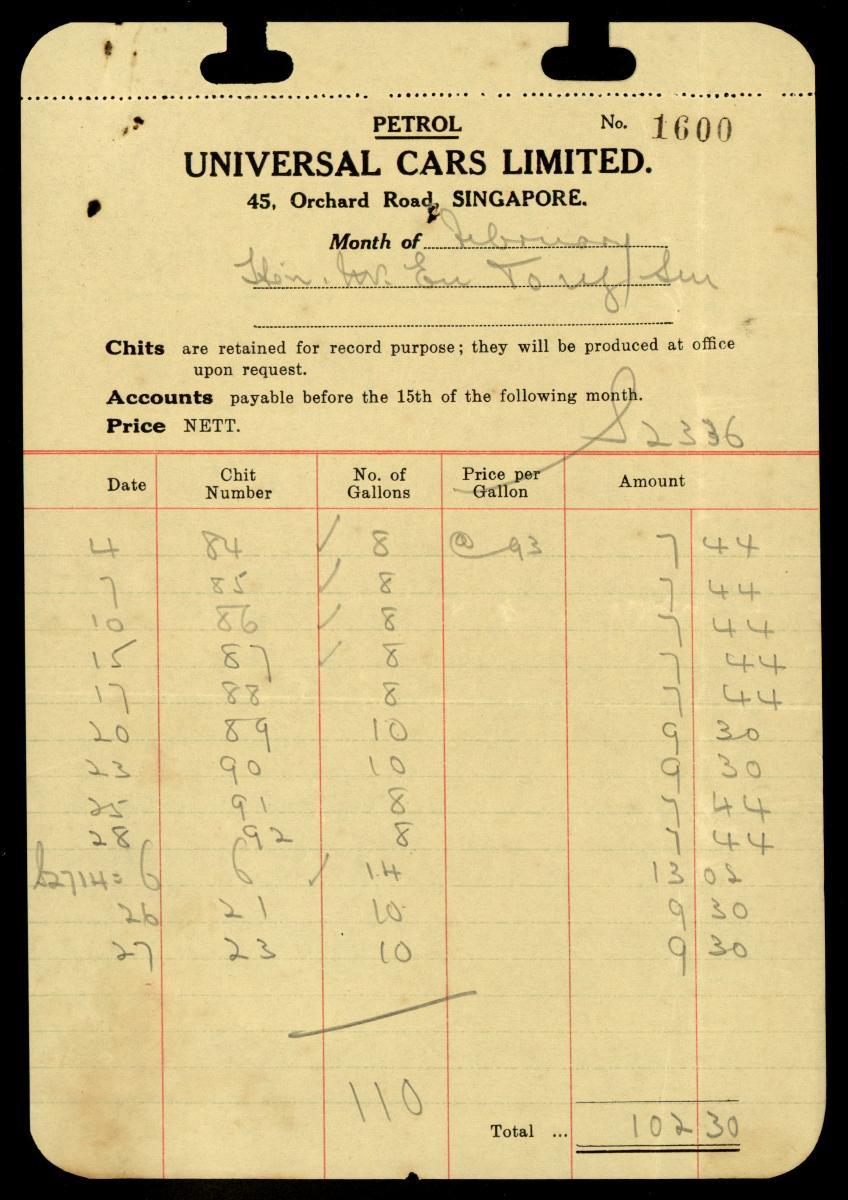 PETROL No. 1600
UNIVERSAL CARS LIMITED.
45, Orchard Road, SINGAPORE.
Month of February
Hon. Mr. Eu Tong Sen
Chits are retained for record purpose; they will be produced at office
upon request.
Accounts payable before the 15th of the following month.
Price NETT.
S2336
Date Chit Number No. of Gallons Price per Gallon Amount
4 84 ✓ 8 @ 93 7 44
7 85 ✓ 8 7 44
10 86 ✓ 8 7 44
15 87 ✓ 8 7 44
17 88 8 7 44
20 89 10 9 30
23 90 10 9 30
25 91 8 7 44
28 92 8 7 44
S2714= 6 6 ✓ 14 13 02
26 21 10 9 30
27 23 10 9 30
110
Total ... 102 30